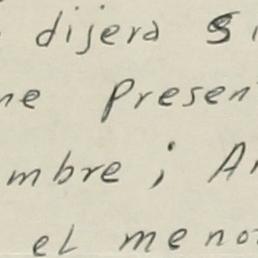 dijera si
ne presen
mbre; A
el meno